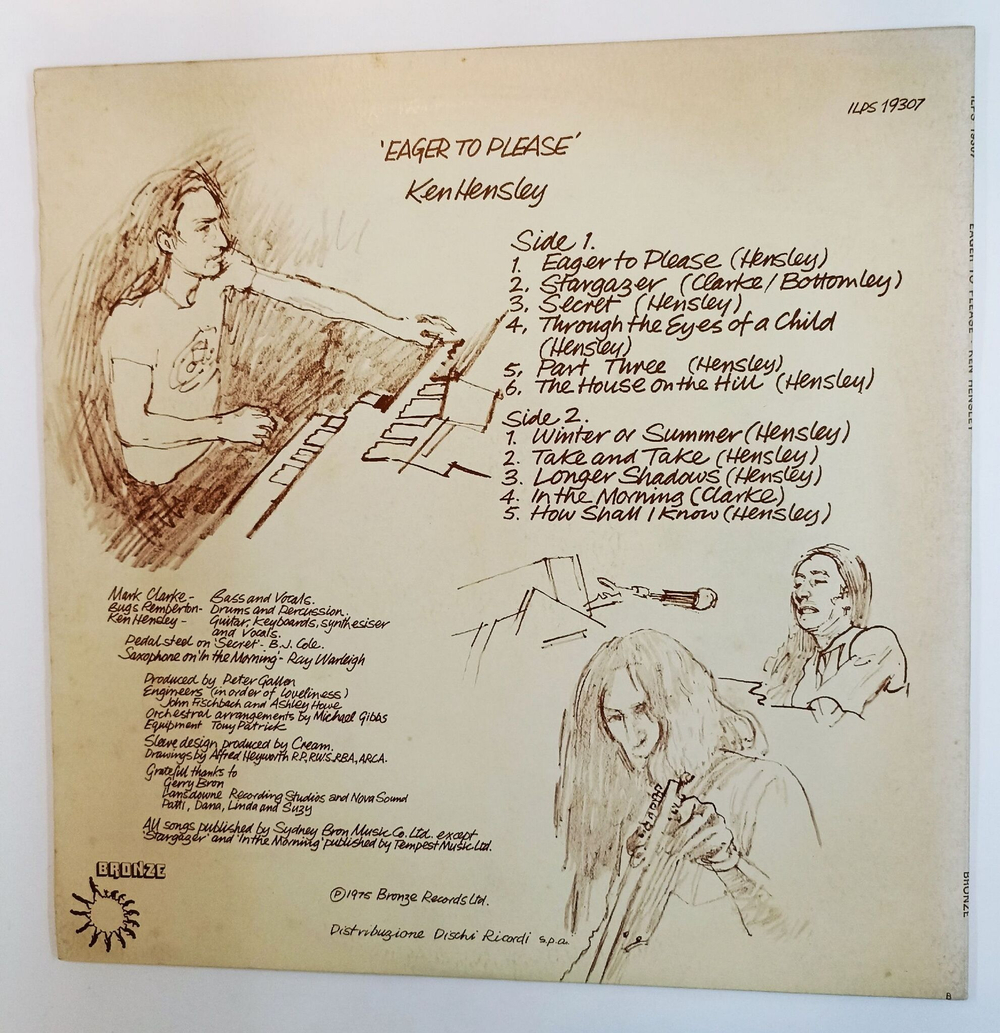 ILPS 19307
'EAGER TO PLEASE'
Ken Hensley
Side 1.
1. Eager to Please (Hensley)
2. Stargazer (Clarke/Bottomley)
3. Secret (Hensley)
4. Through the Eyes of a Child
(Hensley)
5. Part Three (Hensley)
6. The House on the Hill (Hensley)
Side 2.
1. Winter or Summer (Hensley)
2. Take and Take (Hensley)
3. Longer Shadows (Hensley)
4. In the Morning (Clarke)
5. How Shall I Know (Hensley)
Mark Clarke - Bass and Vocals.
Bugs Pemberton - Drums and Percussion.
Ken Hensley - Guitar, Keyboards, synthesiser
and Vocals.
Pedal steel on 'Secret' - B.J. Cole.
Saxophone on 'In the Morning' - Ray Warleigh
Produced by Peter Gallen
Engineers (in order of loveliness)
John Fischbach and Ashley Howe
Orchestral arrangements by Michael Gibbs
Equipment Tony Patrick
Sleeve design produced by Cream.
Drawings by Alfred Heyworth R.P., R.W.S. R.B.A., A.R.C.A.
Grateful thanks to
Gerry Bron
Lansdowne Recording Studios and Nova Sound
Patti, Dana, Linda and Suzy
All songs published by Sydney Bron Music Co. Ltd. except
'Stargazer' and 'In the Morning' published by Tempest Music Ltd.
BRONZE
Ⓟ 1975 Bronze Records Ltd.
Distribuzione Dischi Ricordi s.p.a.
ILPS 19307
EAGER TO PLEASE · KEN HENSLEY
BRONZE
B